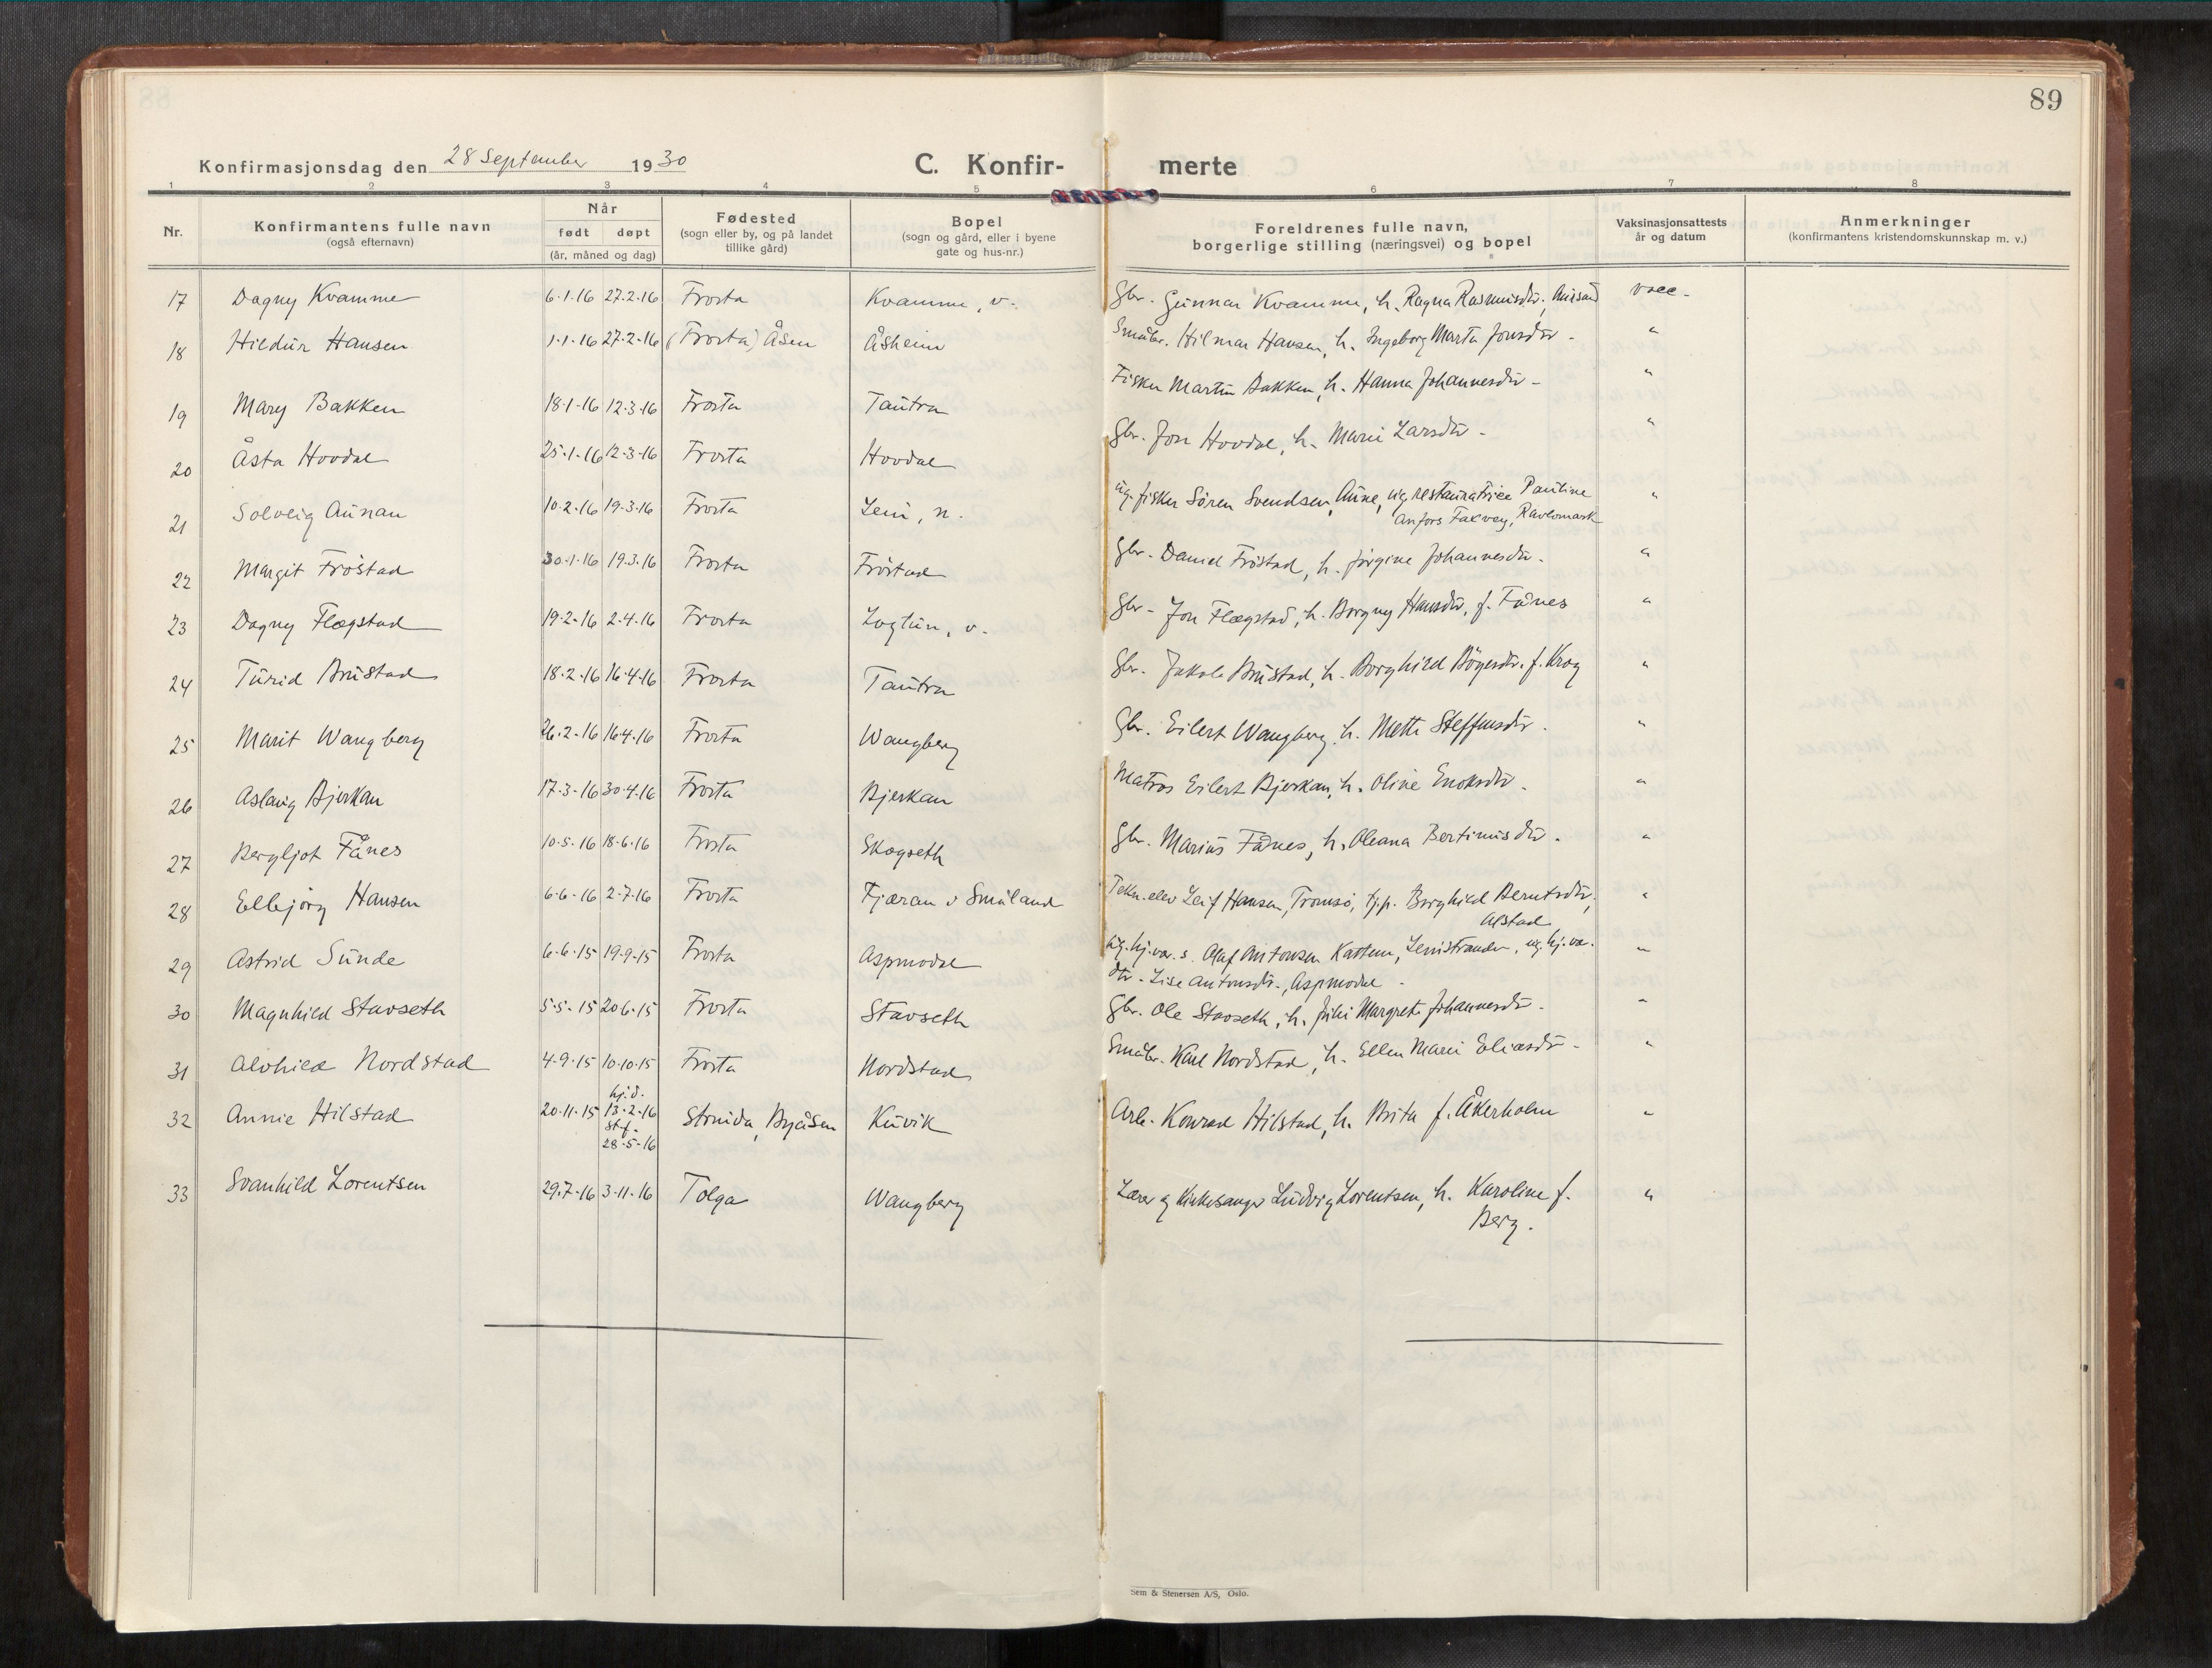 89
Konfirmasjonsdag den 28 September 1930
C. Konfir- merte
1 2 3 4 5 6 7 8
Nr.
Konfirmantens fulle navn
(også efternavn)
Når
født døpt
(år, måned og dag)
Fødested
(sogn eller by, og på landet
tillike gård)
Bopel
(sogn og gård, eller i byene
gate og hus-nr.)
Foreldrenes fulle navn,
borgerlige stilling (næringsvei) og bopel
Vaksinasjonsattests
år og datum
Anmerkninger
(konfirmantens kristendomskunnskap m. v.)
17 Dagny Kvamme 6-1-16 27-2-16 Frosta Kvamme, v. Gbr. Gunnar Kvamme, h. Ragna Rasmusdtr. vacc.
18 Hildur Hansen 1-1-16 27-2-16 (Frosta) Åsen Åsheim Småbr. Hilmar Hansen, h. Ingeborg Marta Jonsdtr. "
19 Mary Bakken 18-1-16 12-3-16 Frosta Tautra Fisker Martin Bakken, h. Hanna Johannesdtr. "
20 Åsta Hovdal 25-1-16 12-3-16 Frosta Hovdal Gbr. Jon Hovdal, h. Marie Larsdtr. "
21 Solveig Aunan 10-2-16 19-3-16 Frosta Lein, n. ug. fisker Søren Svendsen Aune, ug. restauratrice Pauline "
22 Margit Frøstad 30-1-16 19-3-16 Frosta Frøstad Gbr. Daniel Frøstad, h. Jørgine Johannesdtr. "
23 Dagny Flægstad 19-2-16 2-4-16 Frosta Logtun, v. Gbr. Jon Flægstad, h. Borgny Hansdtr, f. Fånes "
24 Turid Brustad 18-2-16 16-4-16 Frosta Tautra Gbr. Jakob Brustad, h. Borghild Bøgesdtr. f. Krog "
25 Marit Wangberg 26-2-16 16-4-16 Frosta Wangberg Gbr. Eilert Wangberg, h. Mette Steffensdtr. "
26 Aslaug Bjerkan 17-3-16 30-4-16 Frosta Bjerkan Matros Eilert Bjerkan, h. Oline Enoksdtr. "
27 Bergljot Fånes 10-5-16 18-6-16 Frosta Skogseth Gbr. Marius Fånes, h. Oleana Bertinusdtr. "
28 Ellbjørg Hansen 6-6-16 2-7-16 Frosta Fjæran v Småland Tekn. elev Leif Hansen, Tromsø, tj.p. Borghild Berntsdtr, "
Alstad
29 Astrid Sunde 6-6-15 19-9-15 Frosta Aspmodal ug. hj.va. s. Olaf Antonsen Kattem, Leinstranden, ug. hj.va. "
dtr. Lise Antonsdtr., Aspmodal
30 Magnhild Stavseth 5-5-15 20-6-15 Frosta Stavseth Gbr. Ole Stavseth, h. Juli Margrete Johannesdtr. "
31 Alvhild Nordstad 4-9-15 10-10-15 Frosta Nordstad Småbr. Karl Nordstad, h. Ellen Marie Eliasdtr. "
32 Annie Hilstad 20-11-15 hj.d. 13-2-16 st.f. 28-5-16 Strinda, Byåsen Kuvik Arb. Konrad Hilstad, h. Brita f. Åkerholm "
33 Svanhild Lorentsen 29-7-16 3-11-16 Tolga Wangberg Lærer og kirkesanger Ludvig Lorentsen, h. Karoline f. "
Berg.
Sem & Stenersen A/S, Oslo.